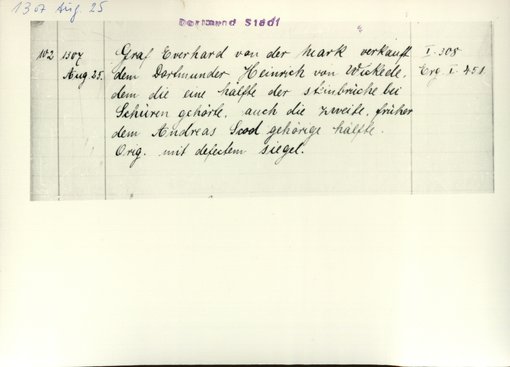 1307 Aug. 25
Dortmund Stadt
102 1307 Graf Everhard von der Mark verkauft I. 305
Aug. 25. dem Dortmunder Heinrich von Wickede, Erg. I. 451
dem die eine hälfte der steinbrüche bei
Schüren gehörte, auch die zweite, früher
dem Andreas gehörige hälfte.
Orig. mit defectem siegel.